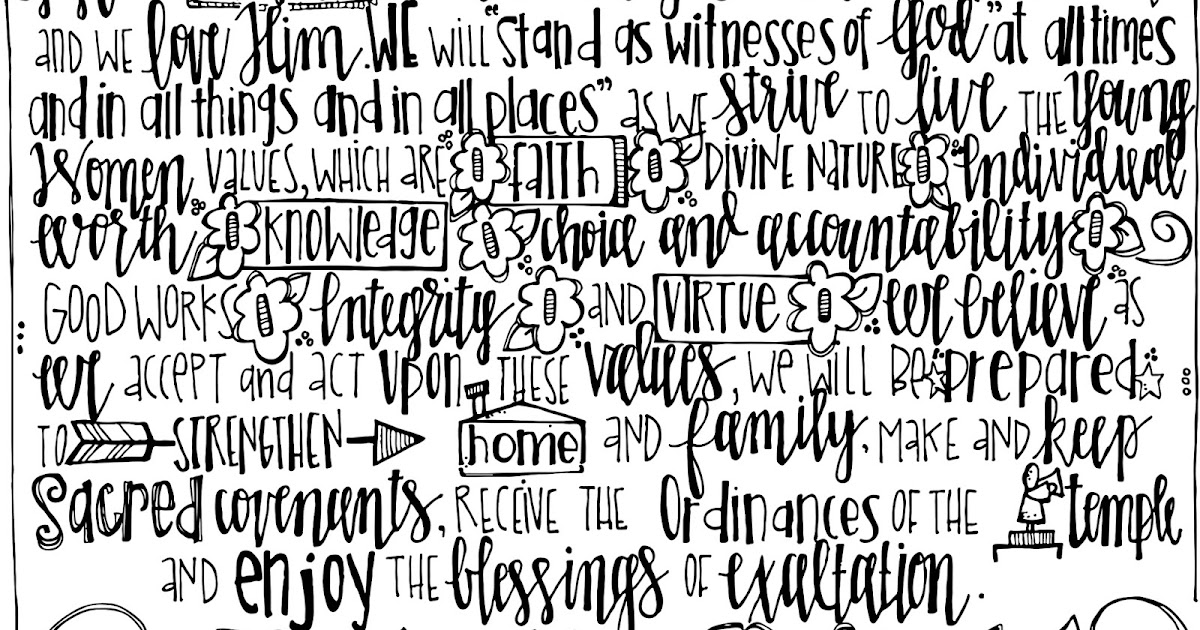 AND WE love Him. WE WILL "Stand as witnesses of God" at all times
and in all things and in all places" as WE strive TO live THE Young
Women VALUES, WHICH ARE FAITH DIVINE NATURE Individual
worth knowledge choice and accountability
GOOD WORKS Integrity AND VIRTUE we believe as
we ACCEPT and ACT UPON THESE values, WE WILL BE prepared
TO STRENGTHEN home AND family, MAKE AND keep
Sacred covenants, RECEIVE THE Ordinances OF THE temple
AND enjoy THE blessings OF exaltation.